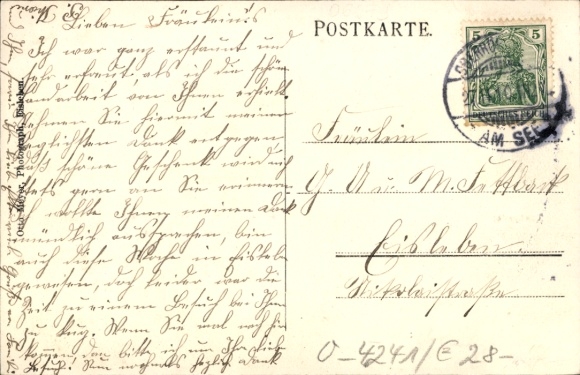 Lieben Fräulein's
Ich war ganz erstaunt und
sehr erfreut, als ich die schöne
Handarbeit von Ihnen erhielt.
Nehmen Sie hiermit meinen
herzlichsten Dank entgegen
das schöne Geschenk wird mich
stets gern an Sie erinnern
Ich wollte Ihnen meinen Dank
mündlich aussprechen, bin
auch diese Woche in Eisleben
gewesen, doch leider war die
Zeit zu einem Besuch bei Ihnen
zu kurz. Wenn Sie mal nach hier
kommen, dan bitte ich um Ihr lieb.
Besuch! Nun nochmals herzlich Dank
Otto Meyer, Photograph, Eisleben.
POSTKARTE.
5 5
AM SEE
Fräulein
G. A u. M. Fettback
Eisleben.
Nikolaistraße
0-4241/E 28-